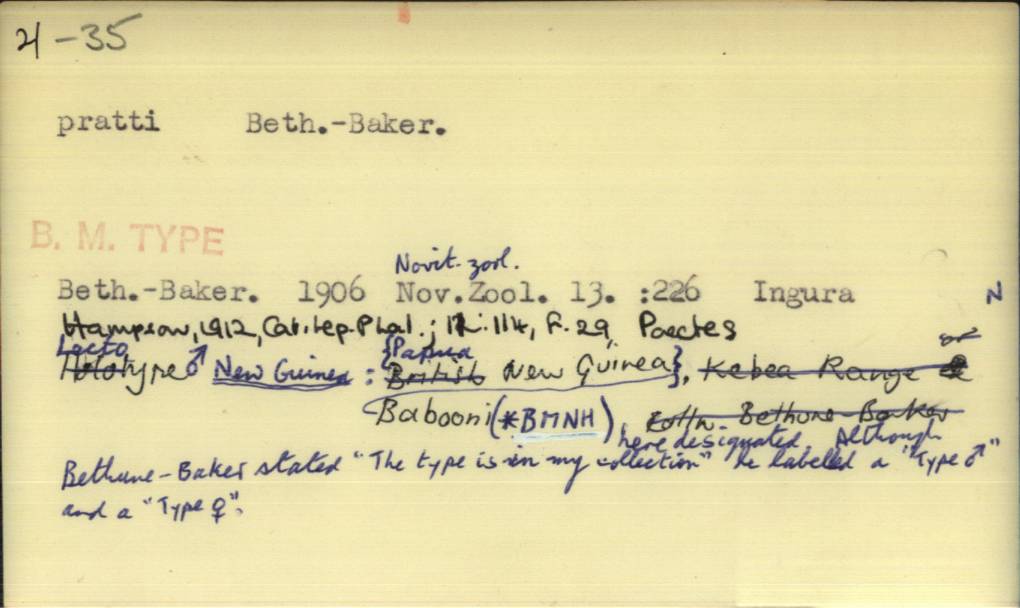 21-35
pratti Beth.-Baker.
B. M. TYPE
Novit. zool.
Beth.-Baker. 1906 Nov.Zool. 13. :226 Ingura N
Hampson, 1912, Cat. Lep. Phal.; 11: 114, f. 29, Paectes
Lecto {Papua or
Holotype ♂ New Guinea : British New Guinea}, Kebea Range &
Babooni (*BMNH) Colln. Bethune-Baker
here designated. Although
Bethune-Baker stated "The type is in my collection" he labelled a "Type ♂"
and a "Type ♀".